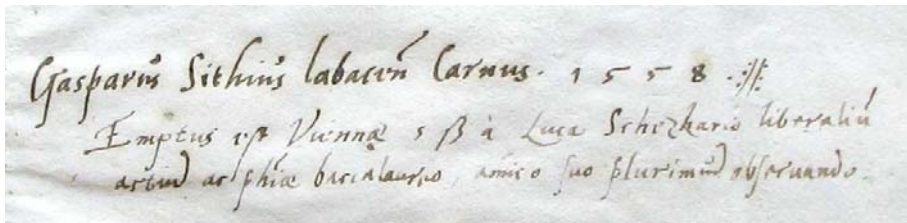 Gasparus Sithius labacen̄ Carnus. 1558 ·//·
Emptus est Viennæ 5 ß à Luca Schezhario liberaliū
artiū ac phiæ baccalaureo, amico suo plurimū obseruando.